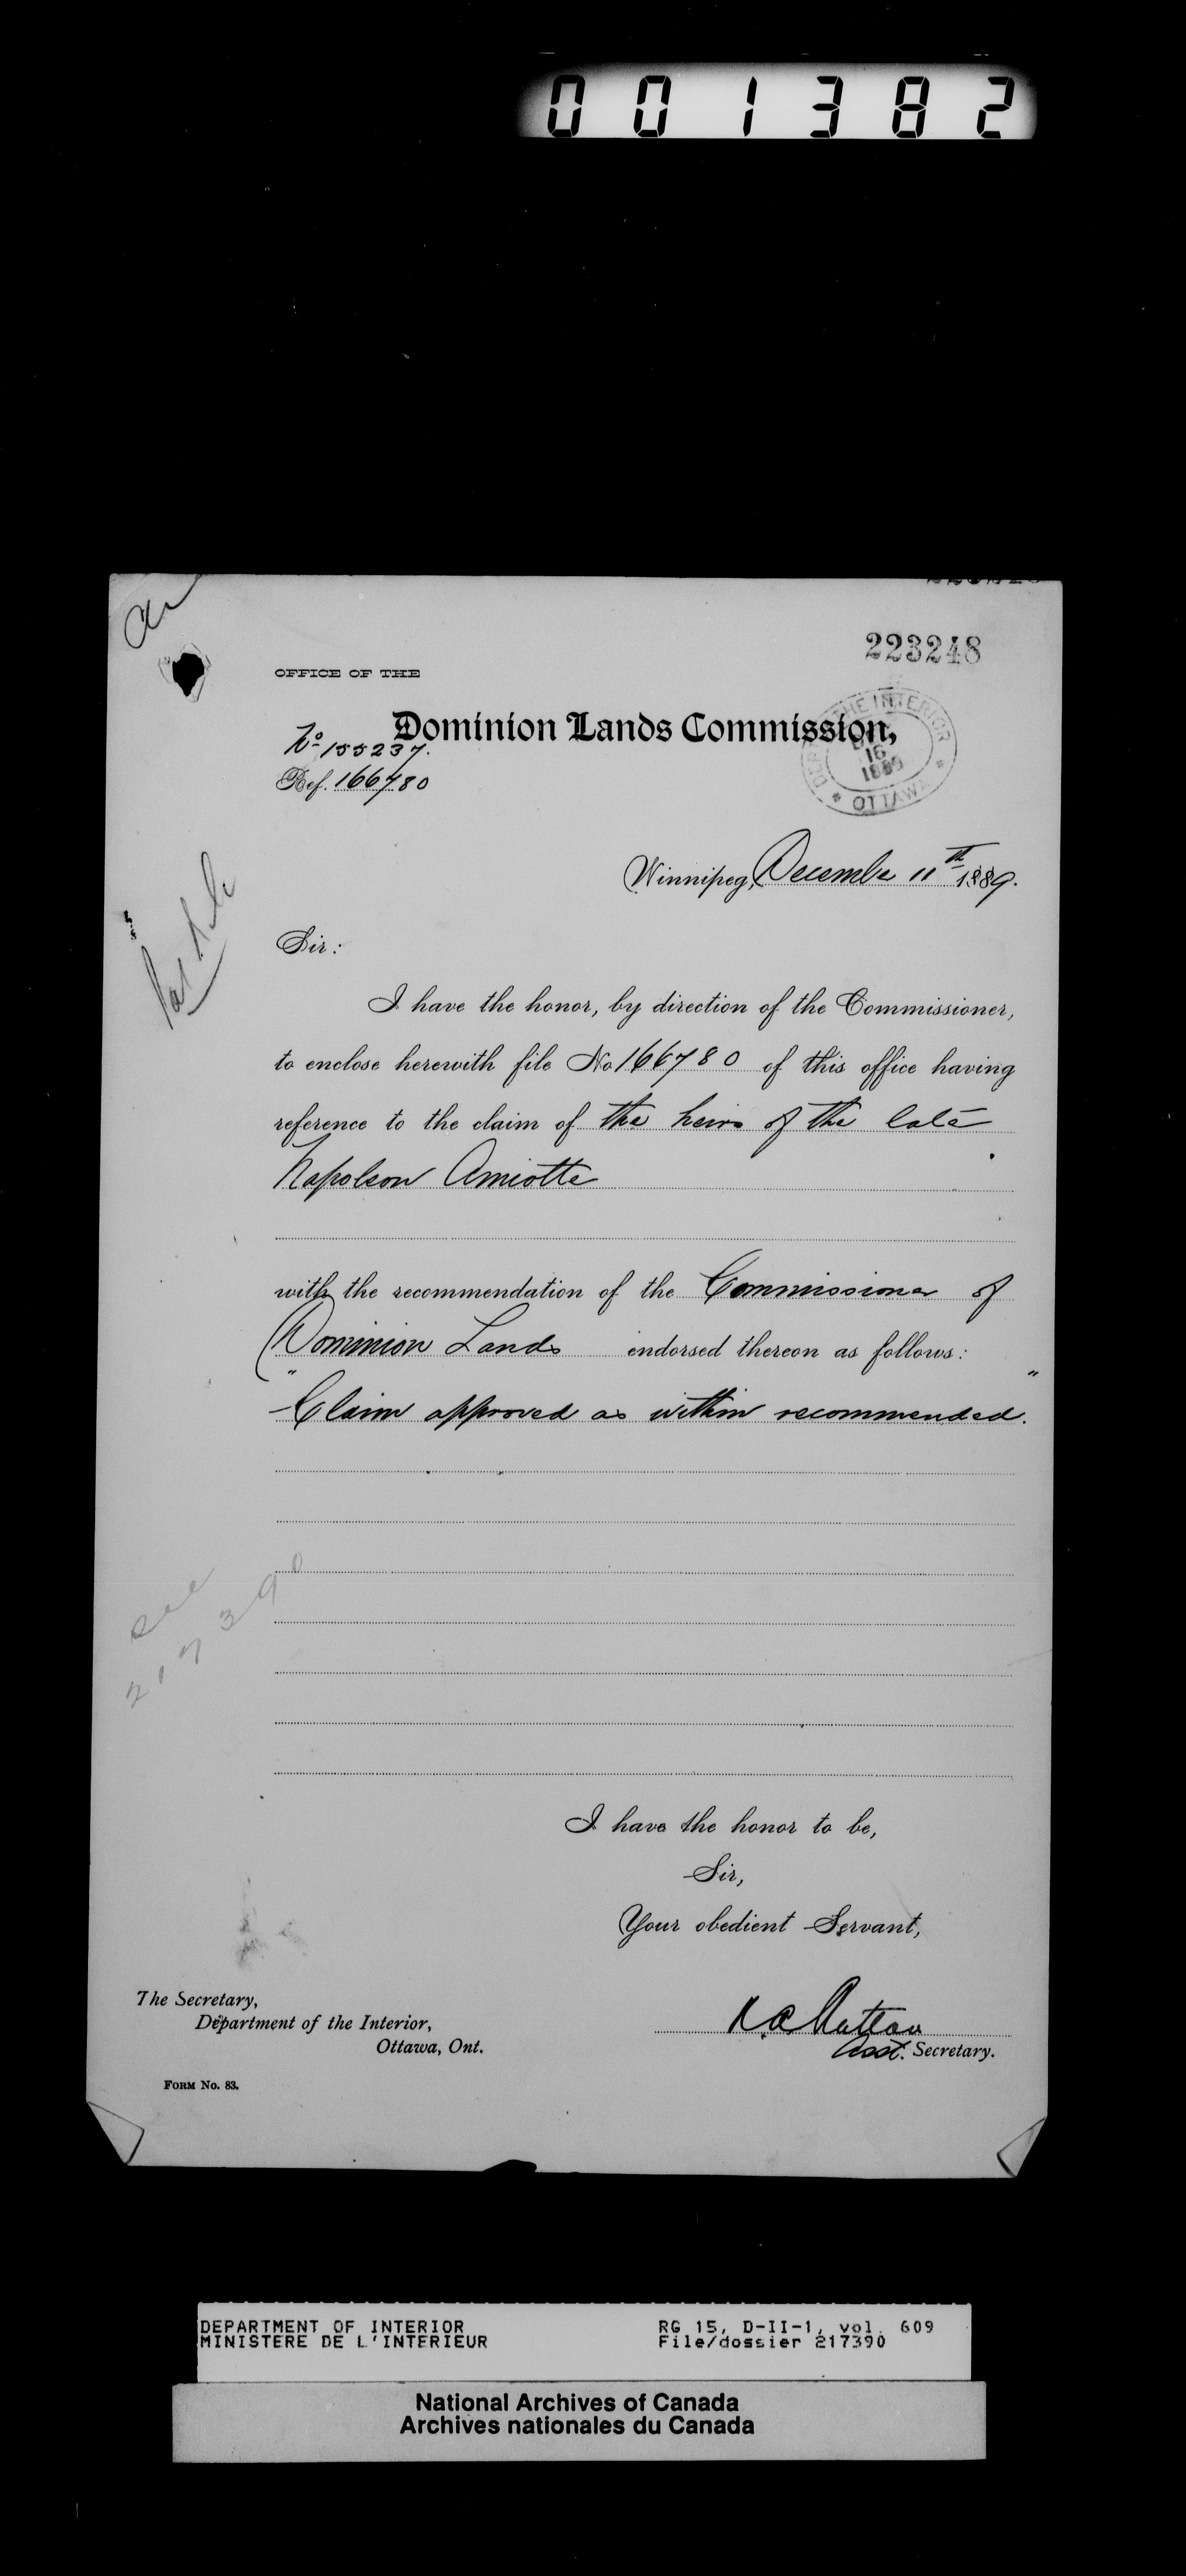 001382
223248
OFFICE OF THE
Dominion Lands Commission,
No 155237.
Ref. 166780
DEPT OF THE INTERIOR
16
1889
* OTTAWA *
Winnipeg, December 11th 1889.
Sir:
I have the honor, by direction of the Commissioner,
to enclose herewith file No 166780 of this office having
reference to the claim of the heirs of the late
Napoleon Amiotte
with the recommendation of the Commissioner of
Dominion Lands endorsed thereon as follows:
"Claim approved as within recommended."
see
217390
I have the honor to be,
Sir,
Your obedient Servant,
Asst. Secretary.
The Secretary,
Department of the Interior,
Ottawa, Ont.
FORM No. 83.
DEPARTMENT OF INTERIOR RG 15, D-II-1, vol. 609
MINISTERE DE L'INTERIEUR File/dossier 217390
National Archives of Canada
Archives nationales du Canada